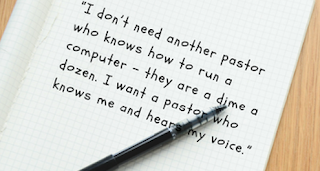 "I don't need another pastor
who knows how to run a
computer – they are a dime a
dozen. I want a pastor who
knows me and hears my voice."